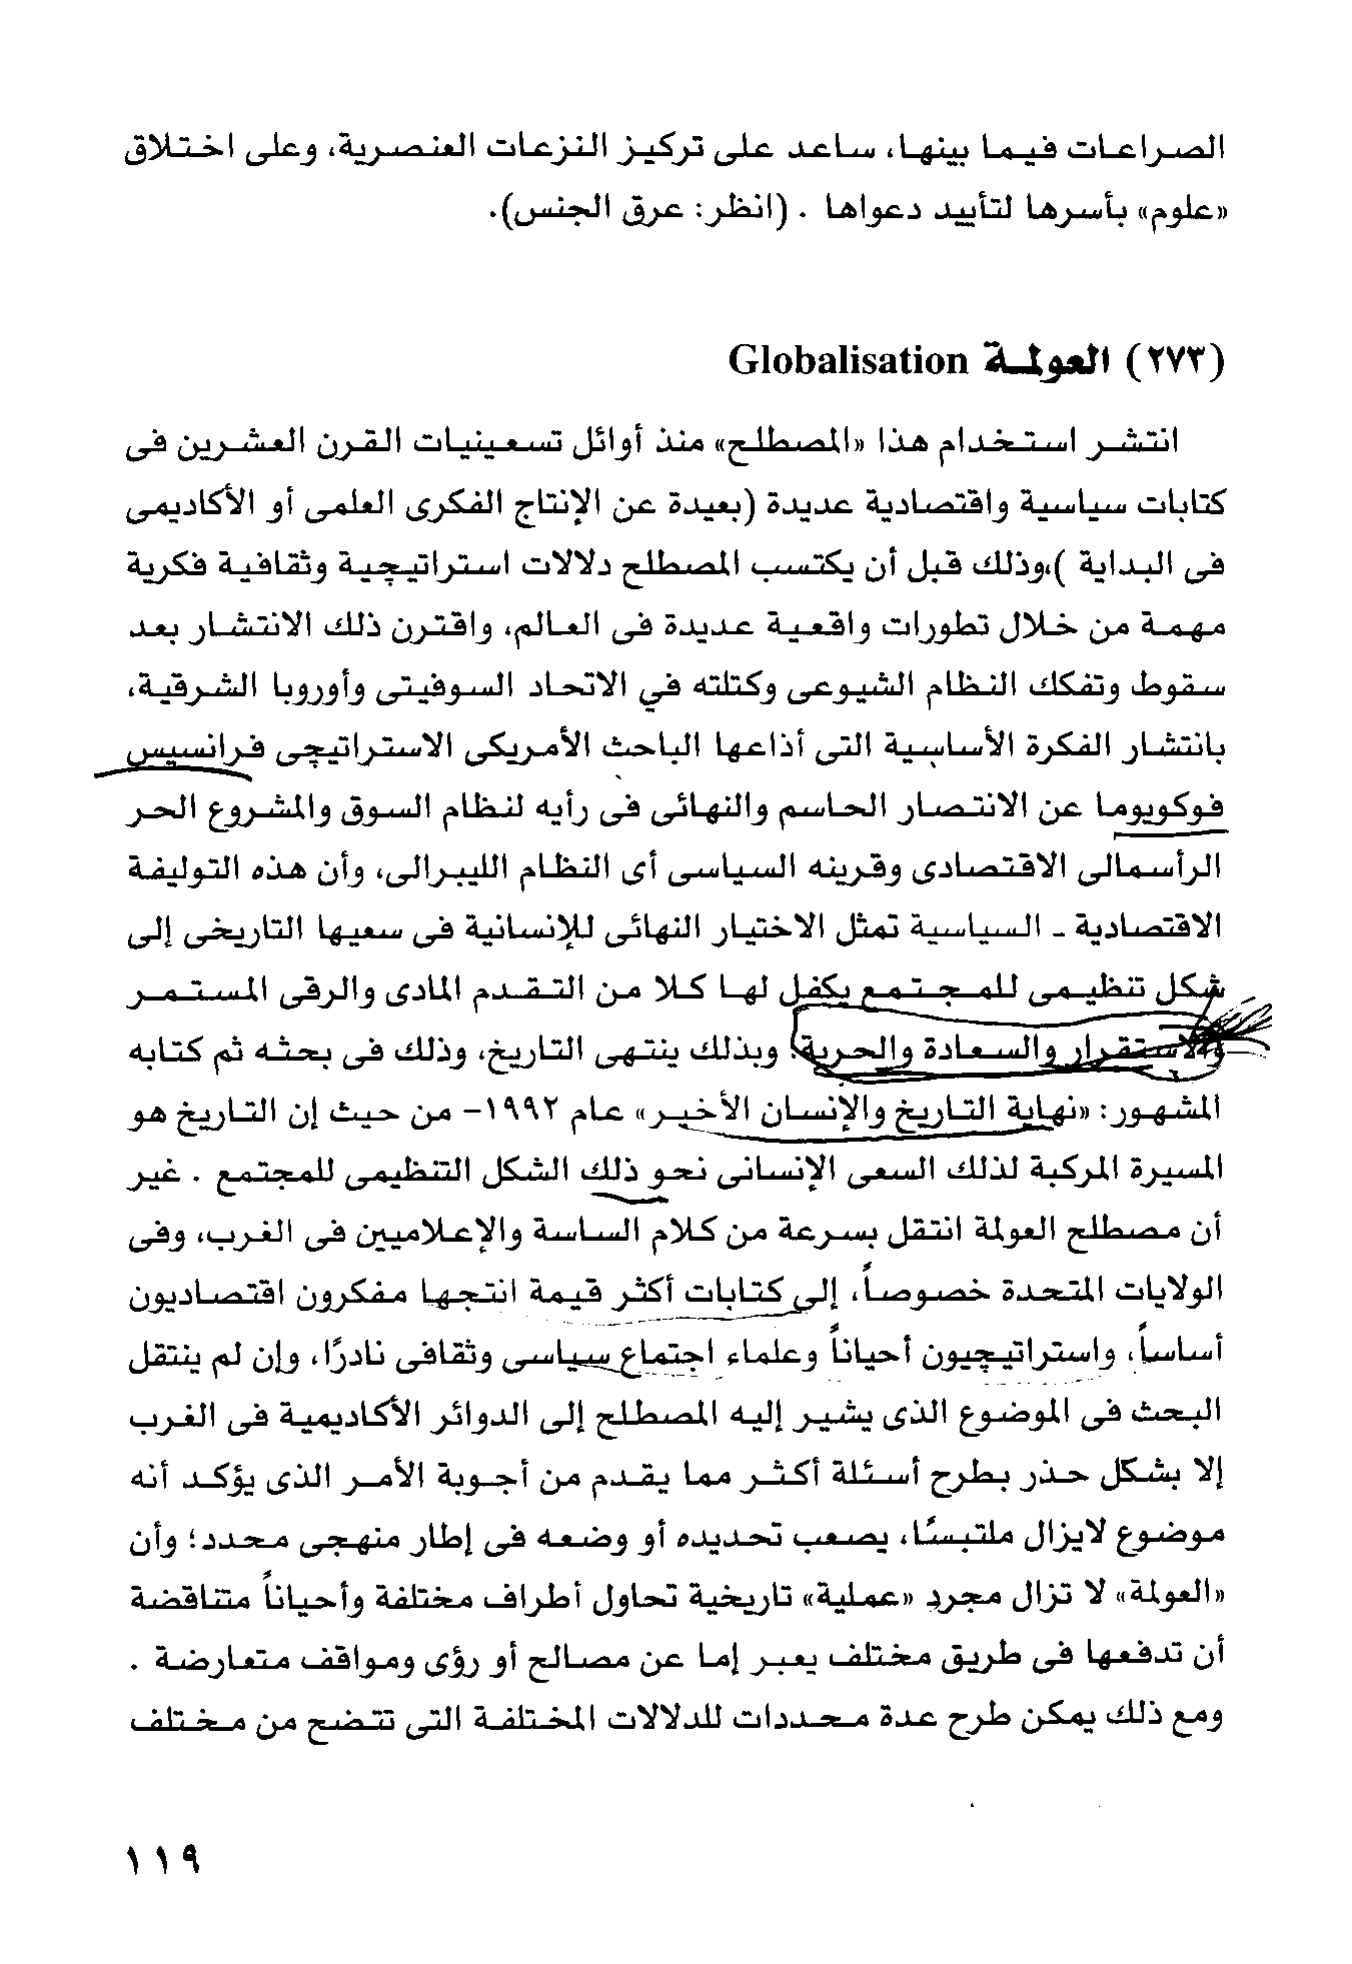 الصراعات فيما بينها، ساعد على تركيز النزعات العنصرية، وعلى اختلاق
«علوم» بأسرها لتأييد دعواها . (انظر: عرق الجنس).
(٢٧٣) العولمة Globalisation
انتشر استخدام هذا «المصطلح» منذ أوائل تسعينيات القرن العشرين فى
كتابات سياسية واقتصادية عديدة (بعيدة عن الإنتاج الفكرى العلمى أو الأكاديمى
فى البداية )،وذلك قبل أن يكتسب المصطلح دلالات استراتيچية وثقافية فكرية
مهمة من خلال تطورات واقعية عديدة فى العالم، واقترن ذلك الانتشار بعد
سقوط وتفكك النظام الشيوعى وكتلته في الاتحاد السوفيتى وأوروبا الشرقية،
بانتشار الفكرة الأساسية التى أذاعها الباحث الأمريكى الاستراتيچى فرانسيس
فوكويوما عن الانتصار الحاسم والنهائى فى رأيه لنظام السوق والمشروع الحر
الرأسمالى الاقتصادى وقرينه السياسى أى النظام الليبرالى، وأن هذه التوليفة
الاقتصادية ـ السياسية تمثل الاختيار النهائى للإنسانية فى سعيها التاريخى إلى
شكل تنظيمى للمجتمع يكفل لها كلا من التقدم المادى والرقى المستمر
والاستقرار والسعادة والحرية؛ وبذلك ينتهى التاريخ، وذلك فى بحثه ثم كتابه
المشهور: «نهاية التاريخ والإنسان الأخير» عام ١٩٩٢- من حيث إن التاريخ هو
المسيرة المركبة لذلك السعى الإنسانى نحو ذلك الشكل التنظيمى للمجتمع . غير
أن مصطلح العولمة انتقل بسرعة من كلام الساسة والإعلاميين فى الغرب، وفى
الولايات المتحدة خصوصاً، إلى كتابات أكثر قيمة انتجها مفكرون اقتصاديون
أساساً، واستراتيچيون أحياناً وعلماء اجتماع سياسى وثقافى نادرًا، وإن لم ينتقل
البحث فى الموضوع الذى يشير إليه المصطلح إلى الدوائر الأكاديمية فى الغرب
إلا بشكل حذر بطرح أسئلة أكثر مما يقدم من أجوبة الأمر الذى يؤكد أنه
موضوع لايزال ملتبسًا، يصعب تحديده أو وضعه فى إطار منهجى محدد؛ وأن
«العولمة» لا تزال مجرد «عملية» تاريخية تحاول أطراف مختلفة وأحياناً متناقضة
أن تدفعها فى طريق مختلف يعبر إما عن مصالح أو رؤى ومواقف متعارضة .
ومع ذلك يمكن طرح عدة محددات للدلالات المختلفة التى تتضح من مختلف
١١٩